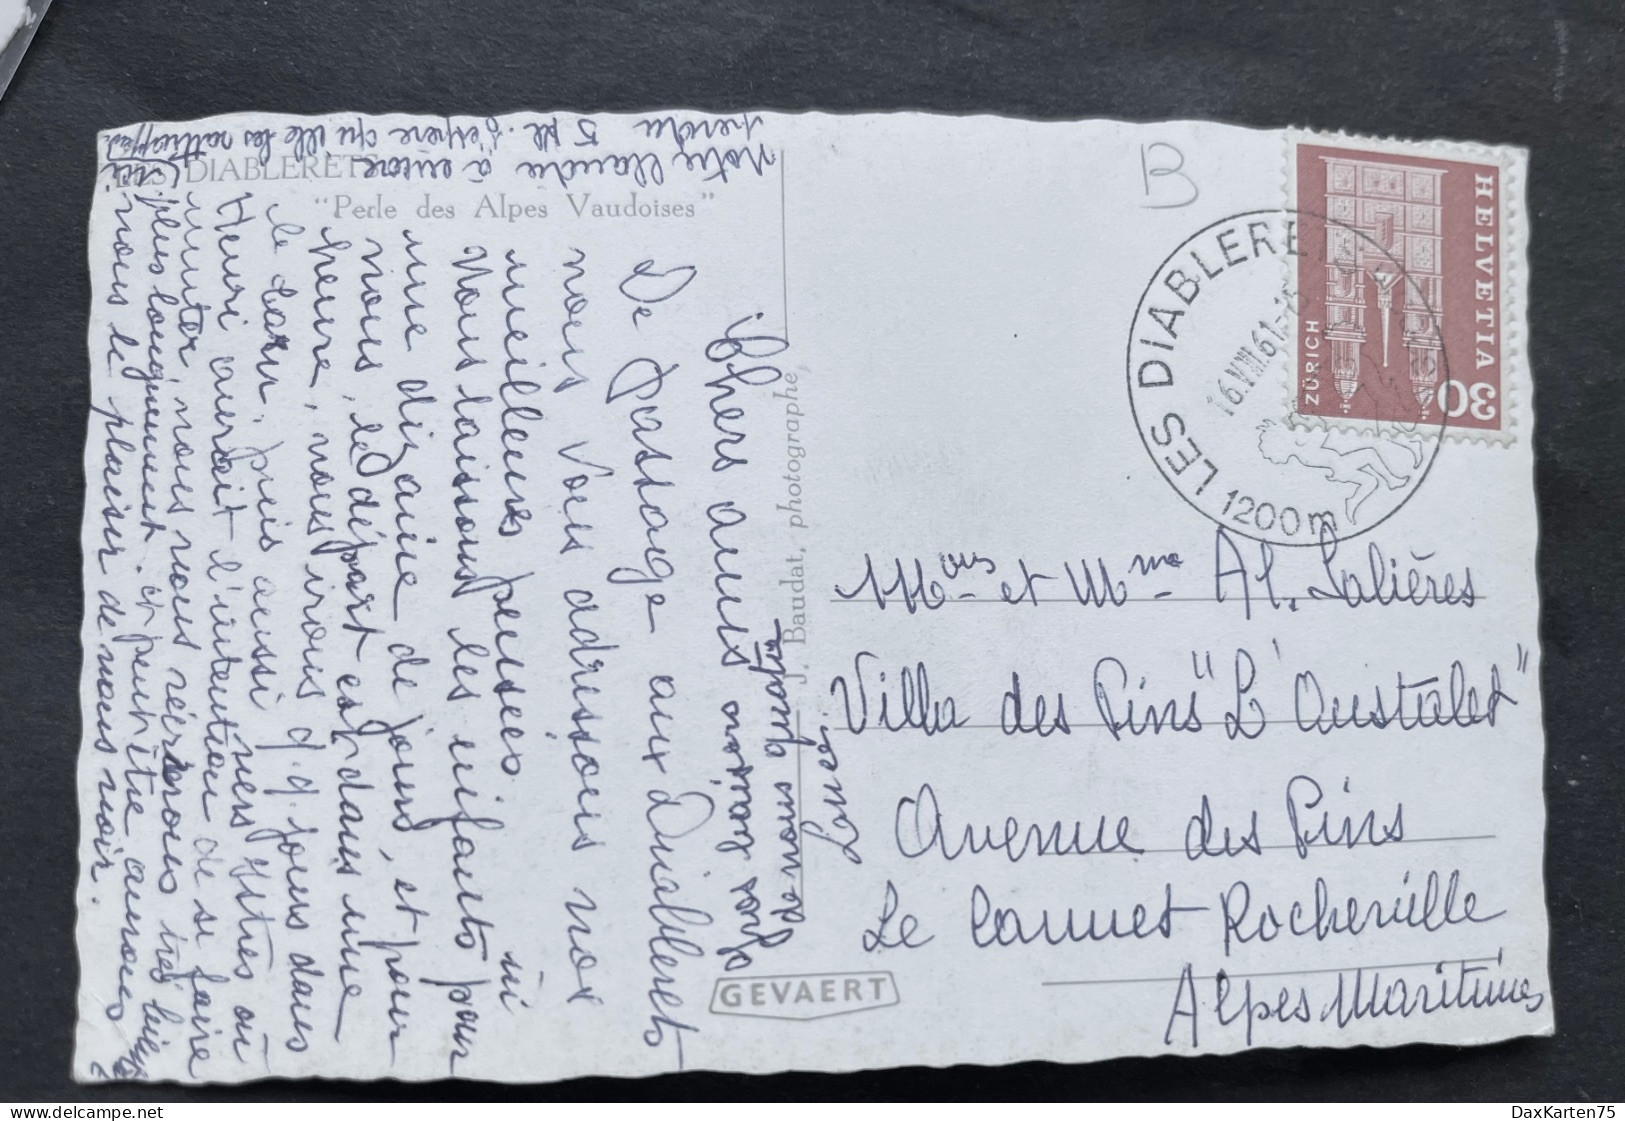 LES DIABLERETS
"Perle des Alpes Vaudoises"
Chers amis
De passage aux Diablerets
nous vous adressons nos
meilleures pensées.
Nous laissons les enfants pour
une dizaine de jours, et pour
nous, le départ est dans une
heure, nous irons q.q. jours dans
le Tarn, puis aussi vers Istres où
Henri aurait l'intention de se faire
muter, nous nous réjouirons très bien
plus longuement. et peut être aurons
nous le plaisir de vous voir.
Notre Claudie à encore
perdu 5 K. j'espère qu'elle les rattrapera
J. Baudat, photographe,
GEVAERT
B
HELVETIA
ZÜRICH
30
LES DIABLERETS
16.VIII.61
1200 m
Mons et Mme Al. Salières
Villa des Pins "L'Oustalet"
Avenue des Pins
Le Cannet Rocheville
Alpes Maritimes
DaxKarten75